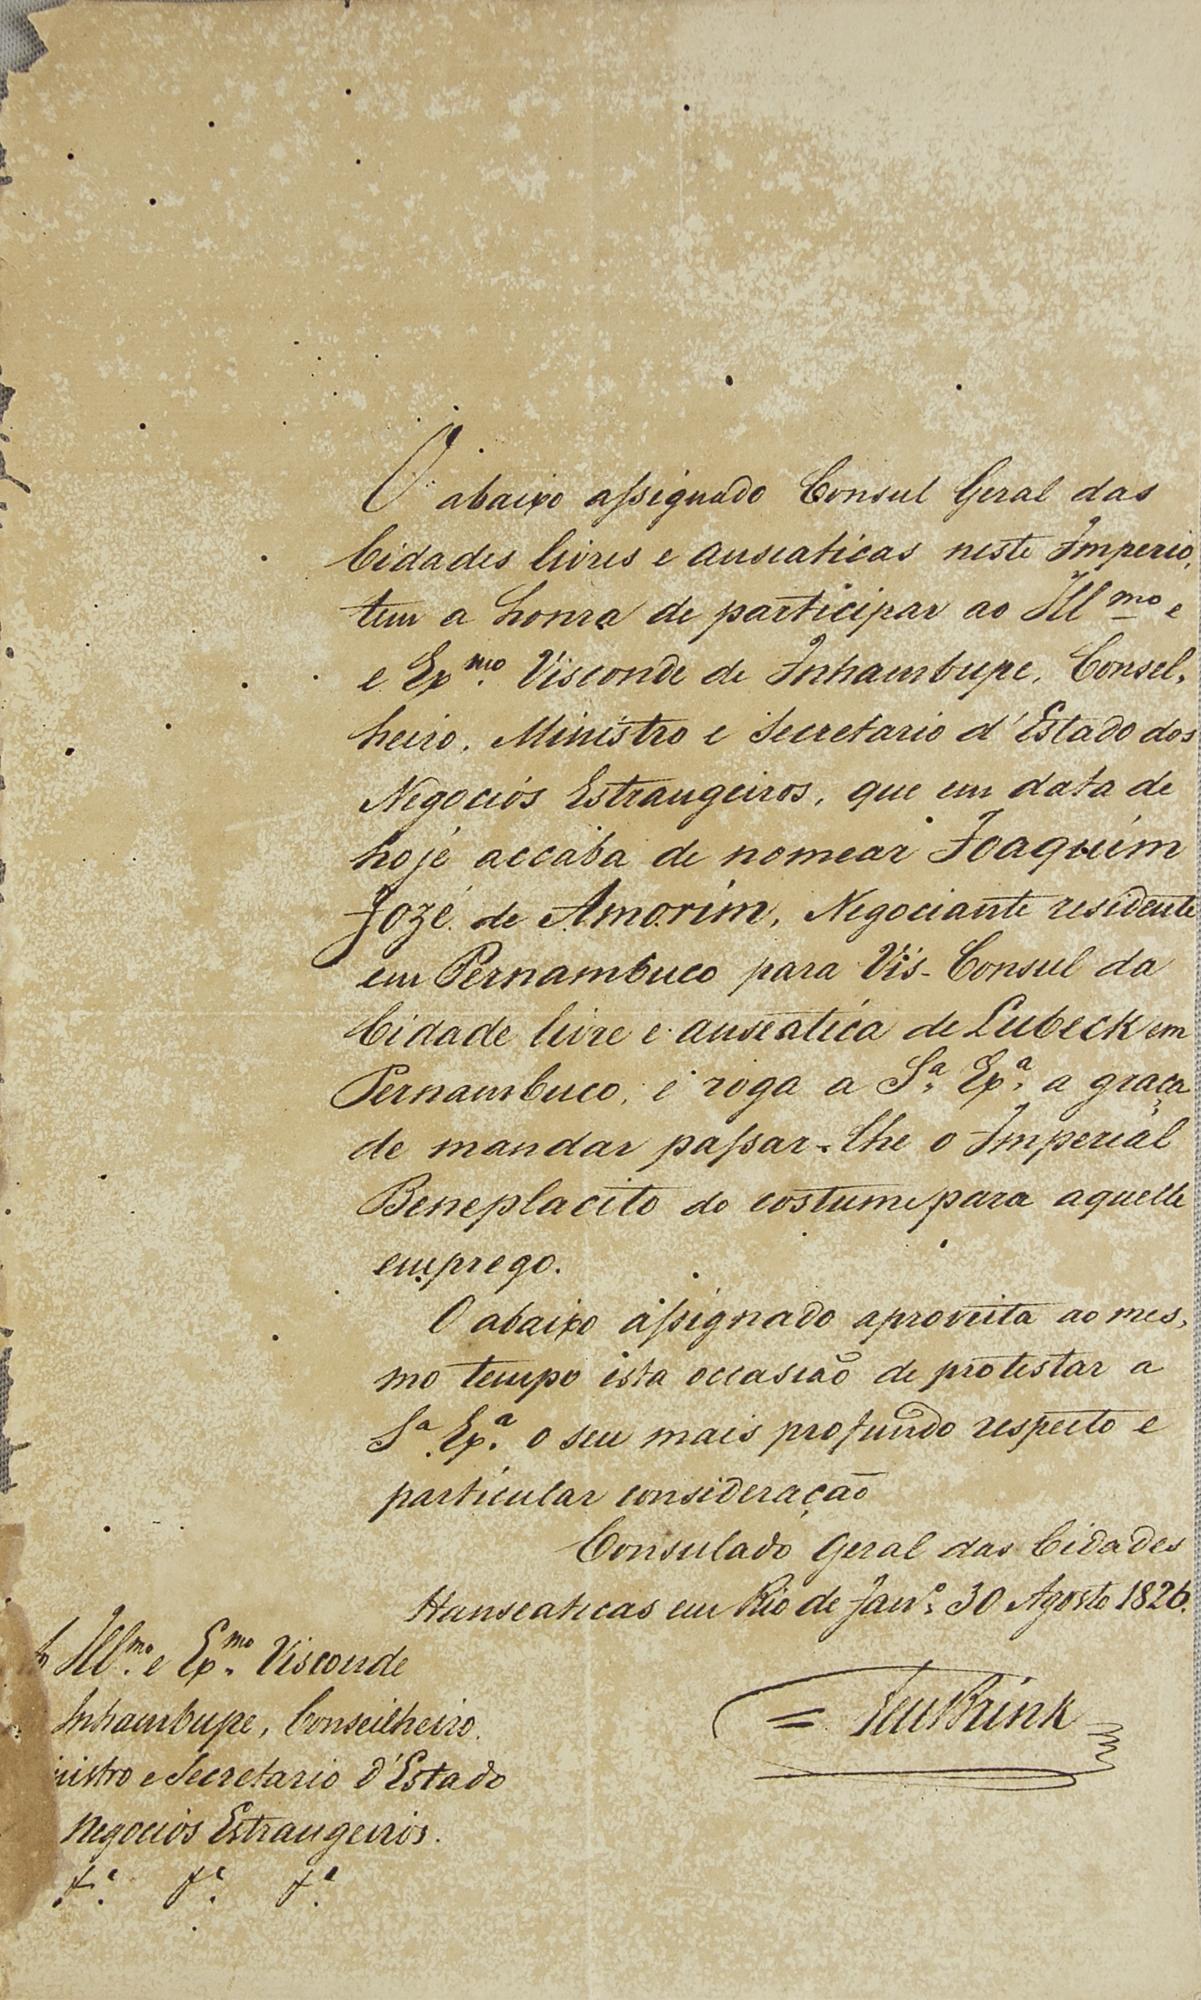 O abaixo assignado Consul Geral das
Cidades livres e anseaticas neste Imperio,
tem a honra de participar ao Ill.mo e
e Ex.mo Visconde de Inhambupe, Consel-
heiro, Ministro e Secretario d'Estado dos
Negocios Estrangeiros, que em data de
hoje accaba de nomear Joaquim
Jozé de Amorim, Negociante residente
em Pernambuco para Vis-Consul da
Cidade livre e anseatica de Lubeck em
Pernambuco, e roga a S.a Ex.a a graça
de mandar passar-lhe o Imperial
Beneplacito do costume para aquelle
emprego.
O abaixo assignado aproveita ao mes-
mo tempo esta occasião de protestar a
S.a Ex.a o seu mais profundo respecto e
particular consideração
Consulado Geral das Cidades
Hanseaticas em Rio de Jan.o 30 Agosto 1826.
Ten Brink
Ill.mo e Ex.mo Visconde
Inhambupe, Conseilheiro.
nistro e Secretario d'Estado
Negocios Estrangeiros.